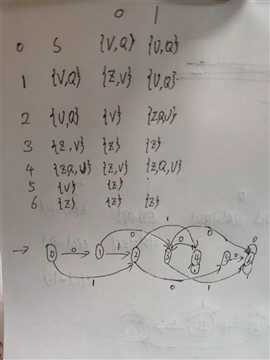 0 1
0 S {V,Q} {U,Q}
1 {V,Q} {Z,V} {U,Q}
2 {U,Q} {V} {Z,Q,U}
3 {Z,V} {Z} {Z}
4 {Z,Q,U} {Z,V} {Z,Q,U}
5 {V} {Z}
6 {Z} {Z} {Z}
1 0
0 0 1 1 2 0 0
1 0 1